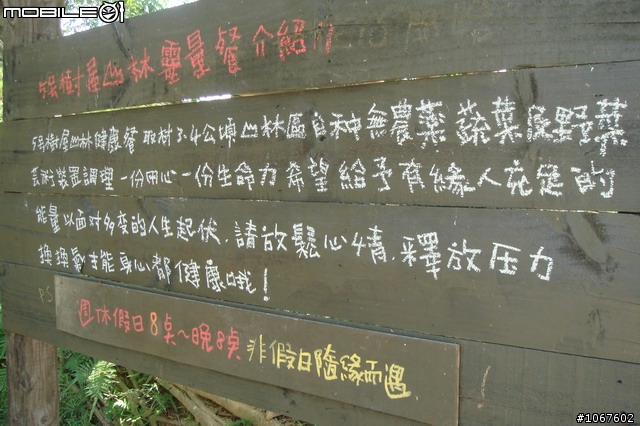 mobile01
樹屋山林靈量餐介紹
樹屋山林健康餐取材3.4公頃山林區自種無農藥蔬菜野菜
裝置調理一份用心一份生命力希望給予有緣人充足的
能量以面对多变的人生起伏.請放鬆心情.釋放压力
換換氣才能身心都健康哦!
PS
週休假日8桌~晚8桌 非假日隨緣而遇
#1067602